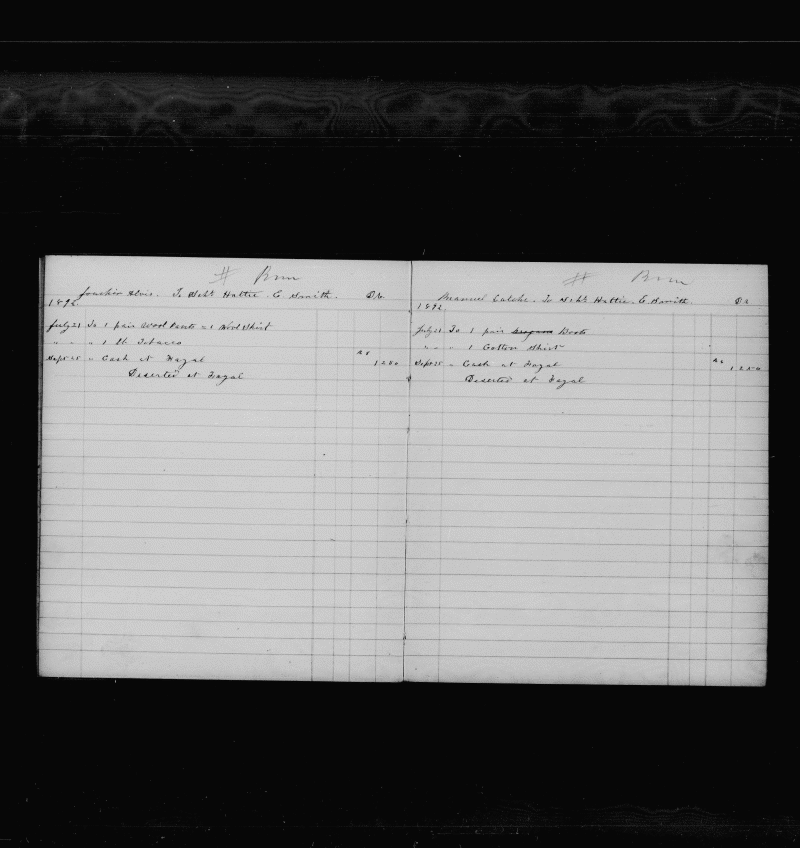 # Brm
Joachim Alvis. To Sch'r Hattie. E. Smith. Dr.
1892.
July 21 To 1 pair Wool Pants = 1 Wool Shirt
" " " 1 lb Tobacco
Sept 25 " Cash at Fayal 12 50
Deserted at Fayal
# Brm
Manuel To Sch'r Hattie. E. Smith. Dr
1892.
July 21 To 1 pair Boots
" " " 1 Cotton Shirt
Sept 25 " Cash at Fayal 12 50
Deserted at Fayal